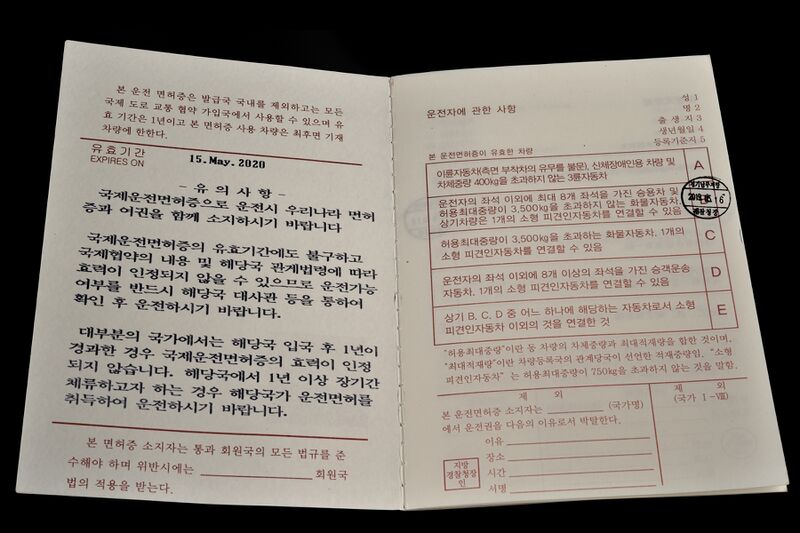 본 운전 면허증은 발급국 국내를 제외하고는 모든
국제 도로 교통 협약 가입국에서 사용할 수 있으며 유
효 기간은 1년이고 본 면허증 사용 차량은 최후면 기재
차량에 한한다.
유효기간
EXPIRES ON
15. May. 2020
- 유 의 사 항 -
국제운전면허증으로 운전시 우리나라 면허
증과 여권을 함께 소지하시기 바랍니다
국제운전면허증의 유효기간에도 불구하고
국제협약의 내용 및 해당국 관계법령에 따라
효력이 인정되지 않을 수 있으므로 운전가능
여부를 반드시 해당국 대사관 등을 통하여
확인 후 운전하시기 바랍니다.
대부분의 국가에서는 해당국 입국 후 1년이
경과한 경우 국제운전면허증의 효력이 인정
되지 않습니다. 해당국에서 1년 이상 장기간
체류하고자 하는 경우 해당국가 운전면허를
취득하여 운전하시기 바랍니다.
본 면허증 소지자는 통과 회원국의 모든 법규를 준
수해야 하며 위반시에는 회원국
법의 적용을 받는다.
운전자에 관한 사항
성 1
명 2
출 생 지 3
생년월일 4
등록기준지 5
본 운전면허증이 유효한 차량
이륜자동차(측면 부착차의 유무를 불문), 신체장애인용 차량 및
차체중량 400kg을 초과하지 않는 3륜자동차
A
운전자의 좌석 이외에 최대 8개 좌석을 가진 승용차 및
허용최대중량이 3,500kg을 초과하지 않는 화물자동차.
상기차량은 1개의 소형 피견인자동차를 연결할 수 있음
허용최대중량이 3,500kg을 초과하는 화물자동차, 1개의
소형 피견인자동차를 연결할 수 있음
C
운전자의 좌석 이외에 8개 이상의 좌석을 가진 승객운송
자동차, 1개의 소형 피견인자동차를 연결할 수 있음
D
상기 B, C, D 중 어느 하나에 해당하는 자동차로서 소형
피견인자동차 이외의 것을 연결한 것
E
"허용최대중량"이란 동 차량의 차체중량과 최대적재량을 합한 것이며,
"최대적재량"이란 차량등록국의 관계당국이 선언한 적재중량임. "소형
피견인자동차" 는 허용최대중량이 750kg을 초과하지 않는 것을 말함.
제 외
본 운전면허증 소지자는 (국가명)
에서 운전권을 다음의 이유로서 박탈한다.
이유
장소
시간
서명
지방
경찰청장
인
제 외
(국가 I-VIII)